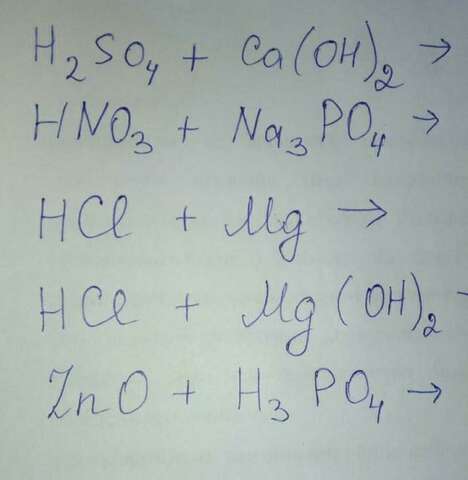 H₂SO₄ + Ca(OH)₂ →
HNO₃ + Na₃PO₄ →
HCl + Mg →
HCl + Mg(OH)₂ →
ZnO + H₃PO₄ →